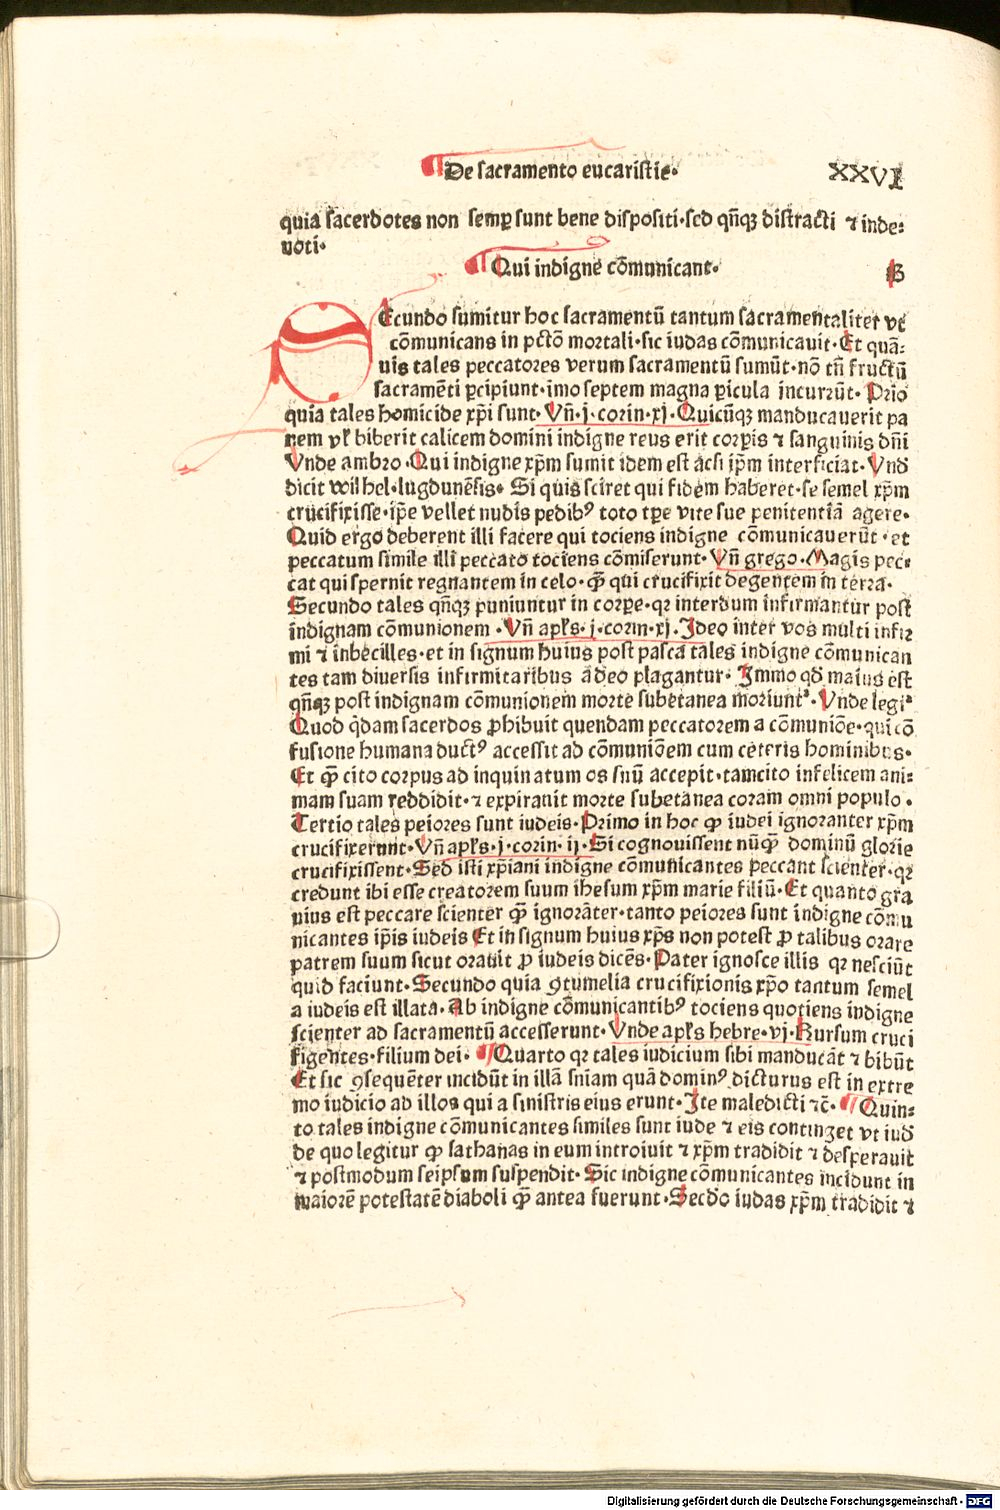 De sacramento eucaristie· XXVI
quia sacerdotes non semꝑ sunt bene dispositi·sed qn̄qꝫ distracti ⁊ inde⸗
uoti·
¶Qui indigne cōmunicant· B
SEcundo sumitur hoc sacramentū tantum sacramentaliter vt
cōmunicans in pctō mortali·sic iudas cōmunicauit·Et quā⸗
uis tales peccatores verum sacramentū sumūt·nō tn̄ fructū
sacramēti ꝑcipiunt·imo septem magna ꝑicula incurrūt· Prio
quia tales homicide xp̄i sunt· Vn̄·j·corin·xj·Quicūqꝫ manducauerit pa
nem vl̓ biberit calicem domini indigne reus erit corꝑis ⁊ sanguinis dn̄i
Vnde ambro·Qui indigne xp̄m sumit idem est acsi ip̄m interficiat·Vnd̓
dicit wilhel·lugdunēsis· Si quis sciret qui fidem haberet·se semel xp̄m
crucifixisse·ip̄e vellet nudis pedibꝰ toto tꝑe vite sue penitentiā agere·
Quid ergo deberent illi facere qui tociens indigne cōmunicauerūt·et
peccatum simile illi peccato tociens cōmiserunt· Vn̄ grego·Magis pec⸗
cat qui spernit regnantem in celo·qͫ̄ qui crucifixit degentem in terra·
Secundo tales qn̄qꝫ puniuntur in corꝑe·qꝛ interdum infirmantur post
indignam cōmunionem·Vn̄ apl̓s·j·corin·xj·Ideo inter vos multi infir
mi ⁊ inbecilles·et in signum huius post pasca tales indigne cōmunican
tes tam diuersis infirmitaribus adeo plagantur· Immo qd̓ maius est
qn̄qꝫ post indignam cōmunionem morte subetanea moriunt᷑·Vnde legi᷑
Quod qͥdam sacerdos ꝓhibuit quendam peccatorem a cōmuniōe·qui cō
fusione humana ductꝰ accessit ad cōmuniōem cum ceteris hominibus·
Et qͫ̄ cito corpus ad inquinatum os suū accepit·tamcito infelicem ani⸗
mam suam reddidit·⁊ expirauit morte subetanea coram omni populo·
Tertio tales peiores sunt iudeis·Primo in hoc ꝙ iudei ignoranter xp̄m
crucifixerunt·Vn̄ apl̓s·j·corin·ij·Si cognouissent nūqͫ̄ dominū glorie
crucifixissent·Sed isti xp̄iani indigne cōmunicantes peccant scienter·qꝛ
credunt ibi esse creatorem suum ihesum xp̄m marie filiū·Et quanto gra
uius est peccare scienter qͫ̄ ignorāter·tanto peiores sunt indigne cōmu
nicantes ip̄is iudeis Et in signum huius xp̄s non potest ꝓ talibus orare
patrem suum sicut orauit ꝓ iudeis dicēs·Pater ignosce illis qꝛ nesciūt
quid faciunt·Secundo quia ꝯtumelia crucifixionis xp̄o tantum semel
a iudeis est illata·Ab indigne cōmunicantibꝰ tociens quotiens indigne
scienter ad sacramentū accesserunt·Vnde apl̓s hebre·vj·Rursum cruci
figentes·filium dei· ¶Quarto qꝛ tales iudicium sibi manducāt ⁊ bibūt
Et sic ꝯsequēter incidūt in illā sn̄iam quā dominꝰ dicturus est in extre
mo iudicio ad illos qui a sinistris eius erunt·Ite maledicti ⁊c̄· ¶Quin⸗
to tales indigne cōmunicantes similes sunt iude ⁊ eis continget vt iud̓
de quo legitur ꝙ sathanas in eum introiuit ⁊ xp̄m tradidit ⁊ desperauit
⁊ postmodum seipsum suspendit·Sic indigne cōmunicantes incidunt in
maiorē potestatē diaboli qͫ̄ antea fuerunt·Secdo iudas xp̄m tradidit ⁊
Digitalisierung gefördert durch die Deutsche Forschungsgemeinschaft - DFG